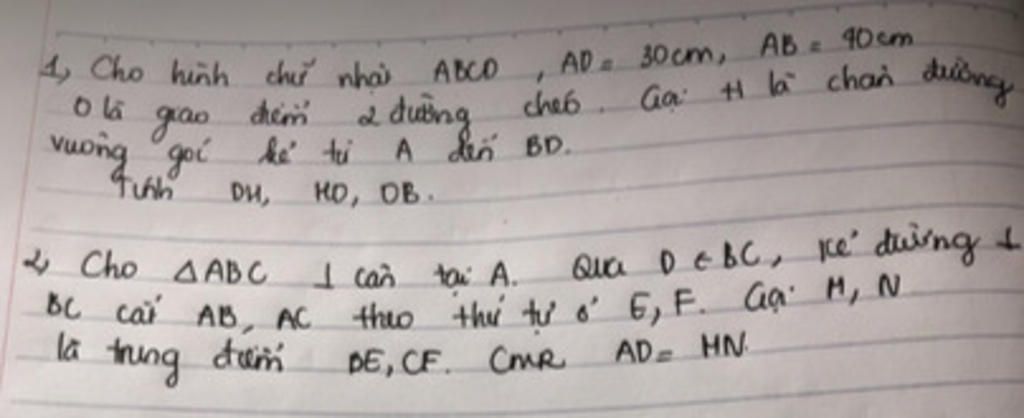 1, Cho hình chữ nhật ABCD, AD = 30cm, AB = 40cm
O là giao điểm 2 đường chéo. Gọi H là chân đường
vuông góc kẻ từ A đến BD.
Tính DH, HO, OB.
2, Cho △ABC ⊥ cân tại A. Qua D ∈ BC, kẻ đường ⊥
BC cắt AB, AC theo thứ tự ở E, F. Gọi M, N
là trung điểm BE, CF. CMR AD = MN.